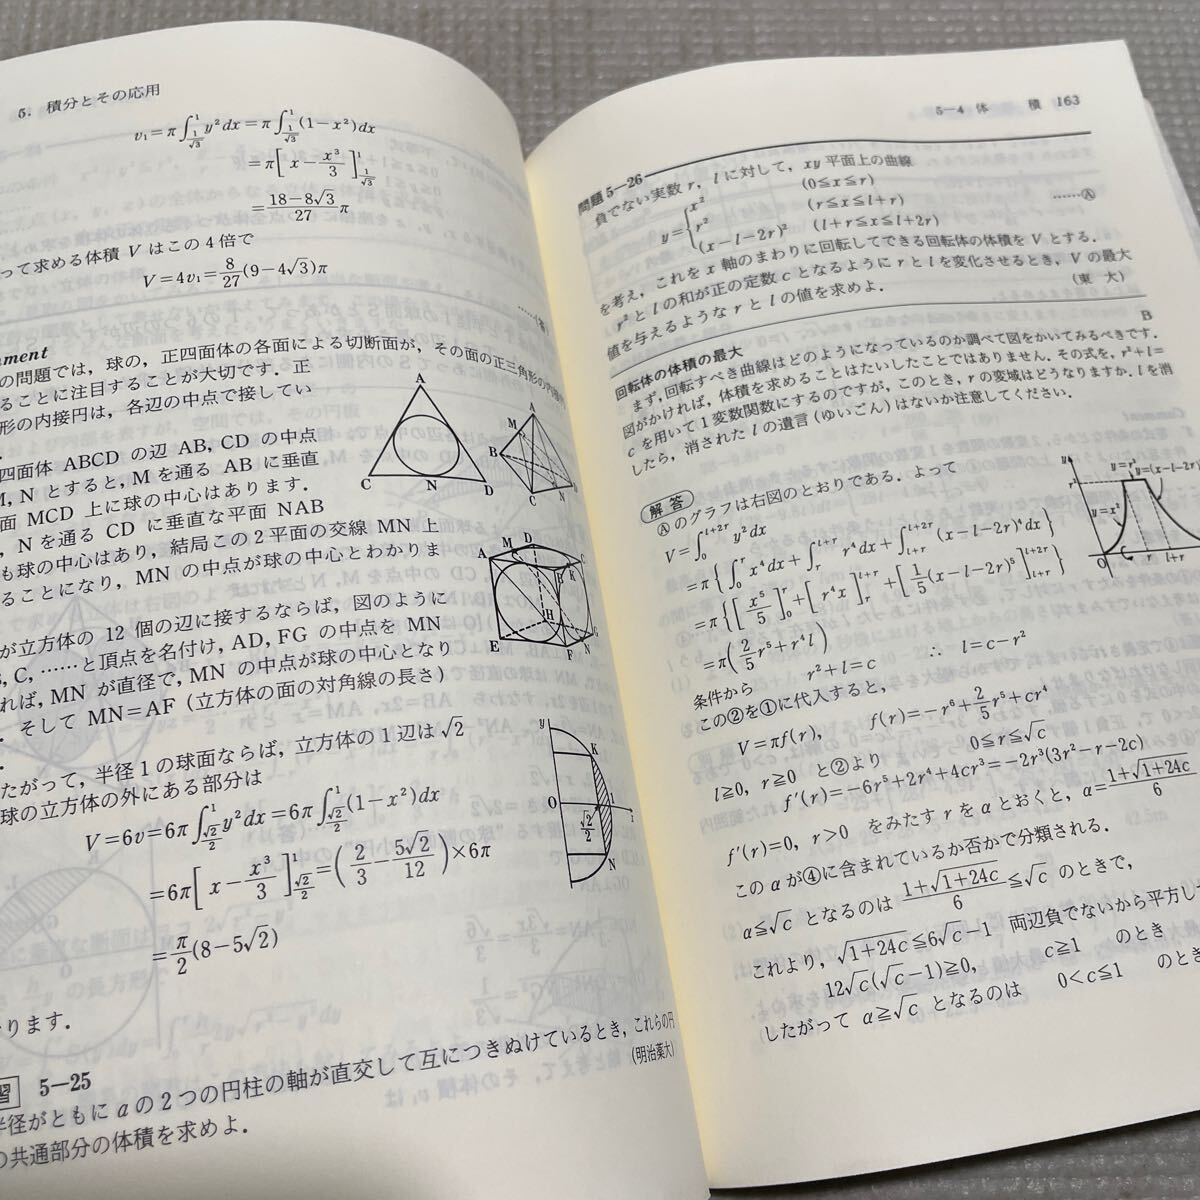 5. 積分とその応用
v₁=π∫_{1/√3}^{1} y²dx=π∫_{1/√3}^{1}(1-x²)dx
=π[x-x³/3]_{1/√3}^{1}
=(18-8√3)/27 π
って求める体積 V はこの4倍で
V=4v₁=8/27(9-4√3)π
……(答)
ment
の問題では，球の，正四面体の各面による切断面が，その面の正三角形の内接円
ることに注目することが大切です．正
形の内接円は，各辺の中点で接してい
四面体 ABCD の辺 AB, CD の中点
M, N とすると，M を通る AB に垂直
面 MCD 上に球の中心はあります．
，N を通る CD に垂直な平面 NAB
も球の中心はあり，結局この2平面の交線 MN 上
ることになり，MN の中点が球の中心とわかりま
A
C N D
A
M
B
C
D
が立方体の 12 個の辺に接するならば，図のように
B, C, ……と頂点を名付け，AD, FG の中点を MN
れば，MN が直径で，MN の中点が球の中心となり
．そして MN=AF (立方体の面の対角線の長さ)
A M D C
B K
H
E F N G
たがって，半径1の球面ならば，立方体の1辺は√2
球の立方体の外にある部分は
V=6v=6π∫_{√2/2}^{1} y²dx=6π∫_{√2/2}^{1}(1-x²)dx
=6π[x-x³/3]_{√2/2}^{1}=(2/3-5√2/12)×6π
=π/2(8-5√2)
ります．
y
K
O √2/2 1
N
習 5-25
半径がともに a の2つの円柱の軸が直交して互につきぬけているとき，これらの円
の共通部分の体積を求めよ．
(明治薬大)
5-4 体 積 163
問題 5-26
負でない実数 r, l に対して，xy 平面上の曲線
y={x² (0≦x≦r)
r² (r≦x≦l+r) ……Ⓐ
(x-l-2r)² (l+r≦x≦l+2r)
を考え，これを x 軸のまわりに回転してできる回転体の体積を V とする．
r² と l の和が正の定数 c となるように r と l を変化させるとき，V の最大
値を与えるような r と l の値を求めよ．
(東 大)
B
回転体の体積の最大
まず，回転すべき曲線はどのようになっているのか調べて図をかいてみるべきです．
図がかければ，体積を求めることはたいしたことではありません．その式を，r²+l=
c を用いて1変数関数にするのですが，このとき，r の変域はどうなりますか．l を消
したら，消された l の遺言(ゆいごん)はないか注意してください．
解答
Ⓐのグラフは右図のとおりである．よって
V=π∫_{0}^{l+2r} y²dx
=π{∫_{0}^{r} x⁴dx+∫_{r}^{l+r} r⁴dx+∫_{l+r}^{l+2r}(x-l-2r)⁴dx}
=π{[x⁵/5]_{0}^{r}+[r⁴x]_{r}^{l+r}+[1/5(x-l-2r)⁵]_{l+r}^{l+2r}}
=π(2/5 r⁵+r⁴l)
y y=r²
r² y=(x-l-2r)²
y=x²
O r l+r
条件から r²+l=c ∴ l=c-r²
この②を①に代入すると，
V=πf(r), f(r)=-r⁶+2/5 r⁵+cr⁴
l≧0, r≧0 と②より 0≦r≦√c
f′(r)=-6r⁵+2r⁴+4cr³=-2r³(3r²-r-2c)
f′(r)=0, r>0 をみたす r を α とおくと，α=(1+√(1+24c))/6
この α が④に含まれているか否かで分類される．
α≦√c となるのは (1+√(1+24c))/6≦√c のときで，
これより，√(1+24c)≦6√c-1 両辺負でないから平方し
12√c(√c-1)≧0, c≧1 のとき
したがって α≧√c となるのは 0<c≦1 のとき